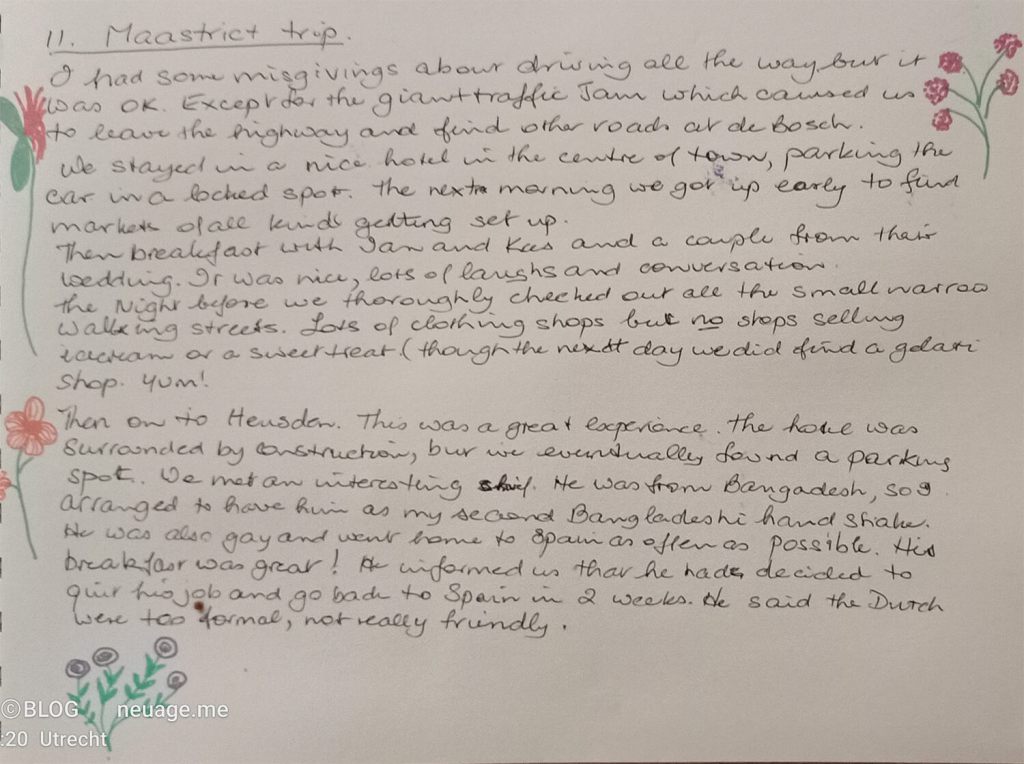 11. Maastrict trip.
I had some misgivings about driving all the way but it
was OK. Except for the giant traffic Jam which caused us
to leave the highway and find other roads at de Bosch.
We stayed in a nice hotel in the centre of town, parking the
car in a locked spot. The next morning we got up early to find
markets of all kinds getting set up.
Then breakfast with Jan and Kees and a couple from their
wedding. It was nice, lots of laughs and conversation.
The Night before we thoroughly checked out all the small narrow
walking streets. Lots of clothing shops but no shops selling
icecream or a sweet treat (though the next day we did find a gelati
shop. Yum!
Then on to Heusden. This was a great experience. The hotel was
surrounded by construction, but we eventually found a parking
spot. We met an interesting chef. He was from Bangadesh, so I
arranged to have him as my second Bangladeshi hand shake.
He was also gay and went home to Spain as often as possible. His
breakfast was great! He informed us that he had decided to
quit his job and go back to Spain in 2 weeks. He said the Dutch
were too formal, not really friendly.
©BLOG neuage.me
:20 Utrecht